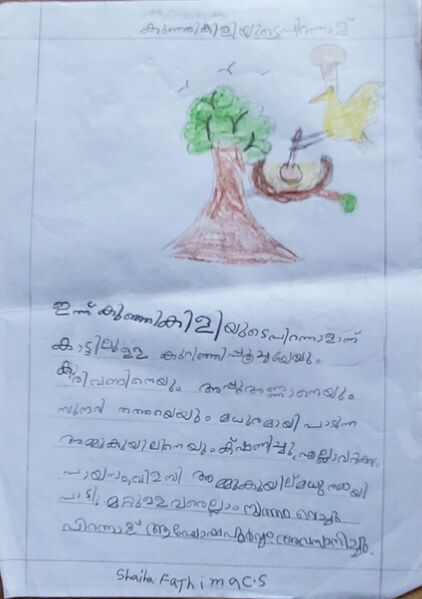 കുഞ്ഞികിളിയുടെപിറന്നാള്
ഇന്ന് കുഞ്ഞികിളിയുടെപിറന്നാളാണ്
കാട്ടിലുള്ള കുറിഞ്ഞിപ്പൂച്ചയേയും
കരിവണ്ടിനെയും അപ്പുഅണ്ണാനെയും
സുന്ദരി തത്തയെയും മധുരമായി പാടുന്ന
അമ്മുകുയിലിനെയും ക്ഷണിച്ചു. എല്ലാവർക്കും
പായസംവിളമ്പി അമ്മുകുയില് മധുരമായി
പാടി. മറ്റുള്ളവരെല്ലാം നൃത്തം വെച്ചു
പിറന്നാള് ആഘോഷപൂർവ്വം അവസാനിച്ചു.
Shaiha Fathima C.S